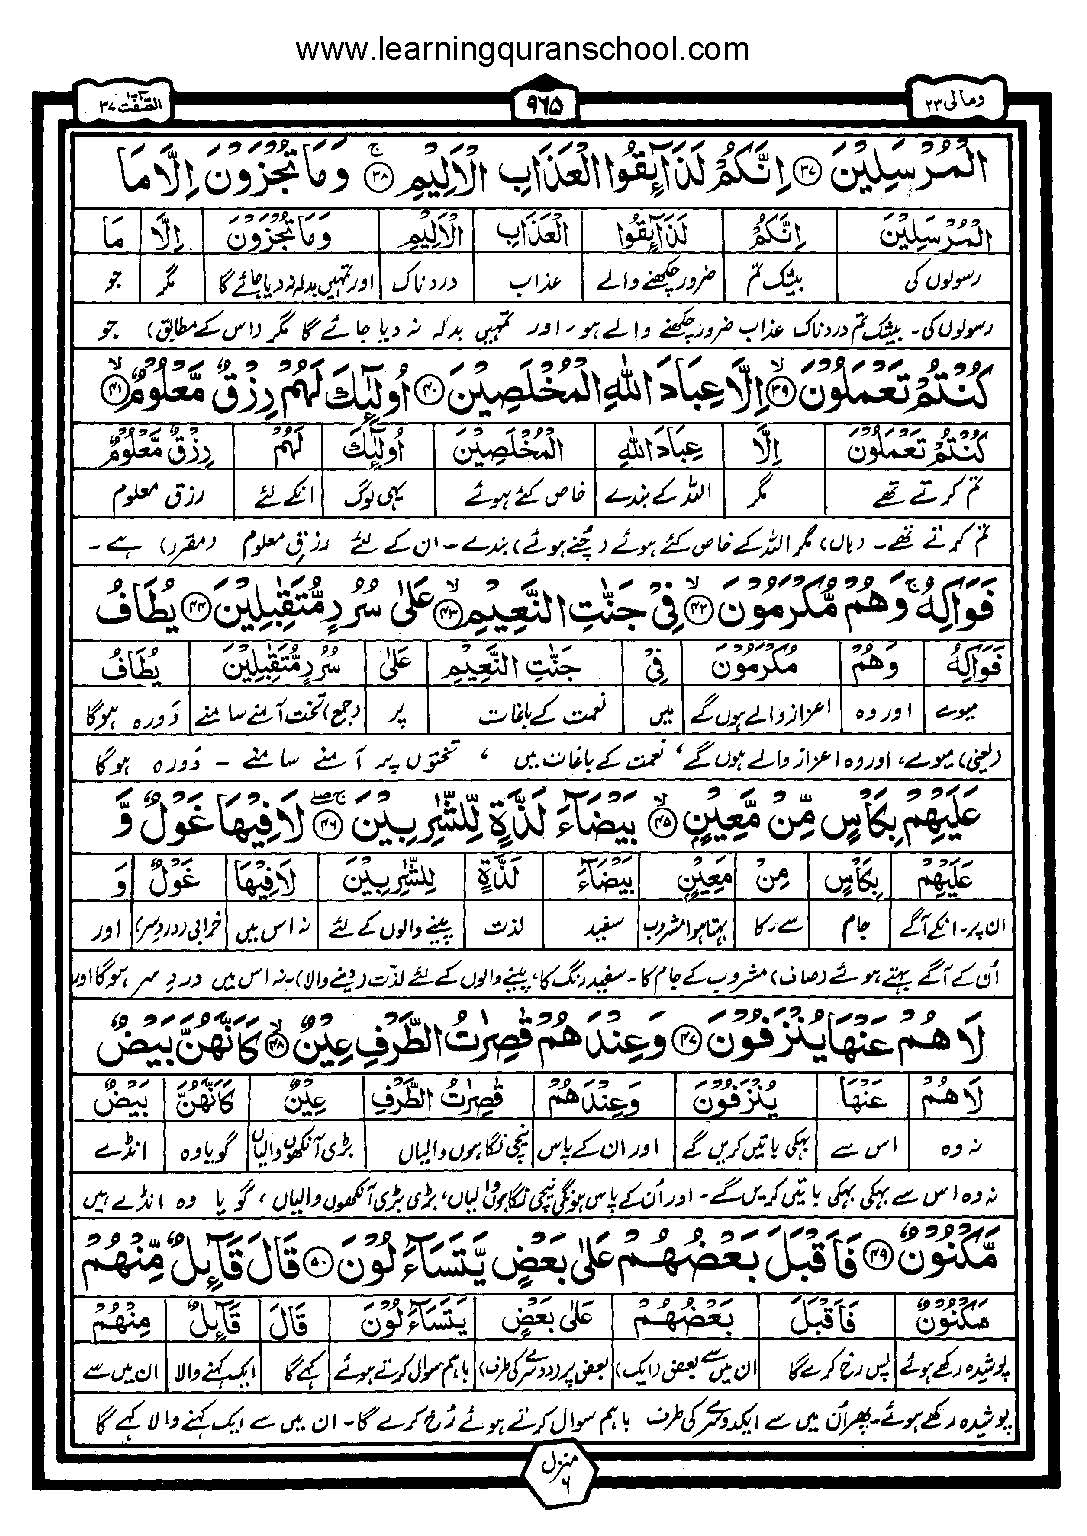 www.learningquranschool.com
الصّٰفّٰت ۳۷
۹۶۵
ومالی ۲۳
الْمُرْسَلِيْنَ ﴿۳۷﴾ اِنَّكُمْ لَذَآىِٕقُوا الْعَذَابِ الْاَلِيْمِ ﴿۳۸﴾ وَمَا تُجْزَوْنَ اِلَّا مَا
الْمُرْسَلِيْنَ اِنَّكُمْ لَذَآىِٕقُوا الْعَذَابِ الْاَلِيْمِ وَمَا تُجْزَوْنَ اِلَّا مَا
رسولوں کی بیشک تم ضرور چکھنے والے عذاب دردناک اور تمہیں بدلہ نہ دیا جائے گا مگر جو
رسولوں کی۔ بیشک تم دردناک عذاب ضرور چکھنے والے ہو۔ اور تمہیں بدلہ نہ دیا جائے گا مگر (اس کے مطابق) جو
كُنْتُمْ تَعْمَلُوْنَ ﴿۳۹﴾ اِلَّا عِبَادَ اللّٰهِ الْمُخْلَصِيْنَ ﴿۴۰﴾ اُولٰٓىِٕكَ لَهُمْ رِزْقٌ مَّعْلُوْمٌ ﴿۴۱﴾
كُنْتُمْ تَعْمَلُوْنَ اِلَّا عِبَادَ اللّٰهِ الْمُخْلَصِيْنَ اُولٰٓىِٕكَ لَهُمْ رِزْقٌ مَّعْلُوْمٌ
تم کرتے تھے مگر اللہ کے بندے خاص کئے ہوئے یہی لوگ انکے لئے رزق معلوم
تم کرتے تھے۔ (ہاں) مگر اللہ کے خاص کئے ہوئے (چنے ہوئے) بندے۔ ان کے لئے رزقِ معلوم (مقرر) ہے۔
فَوَاكِهُ ۚ وَهُمْ مُّكْرَمُوْنَ ﴿۴۲﴾ فِيْ جَنّٰتِ النَّعِيْمِ ﴿۴۳﴾ عَلٰى سُرُرٍ مُّتَقٰبِلِيْنَ ﴿۴۴﴾ يُطَافُ
فَوَاكِهُ وَهُمْ مُكْرَمُوْنَ فِيْ جَنّٰتِ النَّعِيْمِ عَلٰى سُرُرٍ مُّتَقٰبِلِيْنَ يُطَافُ
میوے اور وہ اعزاز والے ہوں گے میں نعمت کے باغات پر (جمع) تخت آمنے سامنے دَورہ ہوگا
(یعنی) میوے، اور وہ اعزاز والے ہوں گے، نعمت کے باغات میں، تختوں پر آمنے سامنے۔ دَورہ ہوگا
عَلَيْهِمْ بِكَاْسٍ مِّنْ مَّعِيْنٍ ﴿۴۵﴾ بَيْضَآءَ لَذَّةٍ لِّلشّٰرِبِيْنَ ﴿۴۶﴾ لَا فِيْهَا غَوْلٌ وَّ
عَلَيْهِمْ بِكَاْسٍ مِنْ مَعِيْنٍ بَيْضَآءَ لَذَّةٍ لِلشّٰرِبِيْنَ لَا فِيْهَا غَوْلٌ وَ
ان پر۔ انکے آگے جام سے۔ کا بہتا ہوا مشروب سفید لذت پینے والوں کے لئے نہ اس میں خرابی (دردسر) اور
اُن کے آگے بہتے ہوئے (صاف) مشروب کے جام کا۔ سفید رنگ کا، پینے والوں کے لئے لذت (دینے والا)۔ نہ اس میں دردِ سر ہوگا اور
لَا هُمْ عَنْهَا يُنْزَفُوْنَ ﴿۴۷﴾ وَعِنْدَهُمْ قٰصِرٰتُ الطَّرْفِ عِيْنٌ ﴿۴۸﴾ كَاَنَّهُنَّ بَيْضٌ
لَا هُمْ عَنْهَا يُنْزَفُوْنَ وَعِنْدَهُمْ قٰصِرٰتُ الطَّرْفِ عِيْنٌ كَاَنَّهُنَّ بَيْضٌ
نہ وہ اس سے بہکی باتیں کریں گے اور ان کے پاس نیچی نگاہوں والیاں بڑی آنکھوں والیاں گویا وہ انڈے
نہ وہ اس سے بہکی بہکی باتیں کریں گے۔ اور اُن کے پاس ہونگی نیچی نگاہوں والیاں، بڑی بڑی آنکھوں والیاں، گویا وہ انڈے ہیں
مَّكْنُوْنٌ ﴿۴۹﴾ فَاَقْبَلَ بَعْضُهُمْ عَلٰى بَعْضٍ يَّتَسَآءَلُوْنَ ﴿۵۰﴾ قَالَ قَآىِٕلٌ مِّنْهُمْ
مَكْنُوْنٌ فَاَقْبَلَ بَعْضُهُمْ عَلٰى بَعْضٍ يَتَسَآءَلُوْنَ قَالَ قَآىِٕلٌ مِنْهُمْ
پوشیدہ رکھے ہوئے پس رخ کرے گا ان میں سے بعض (ایک) بعض پر (دوسرے کی طرف) باہم سوال کرتے ہوئے کہے گا ایک کہنے والا ان میں سے
پوشیدہ رکھے ہوئے۔ پھر اُن میں سے ایک دوسرے کی طرف باہم سوال کرتے ہوئے رُخ کرے گا۔ ان میں سے ایک کہنے والا کہے گا
منزل ۶